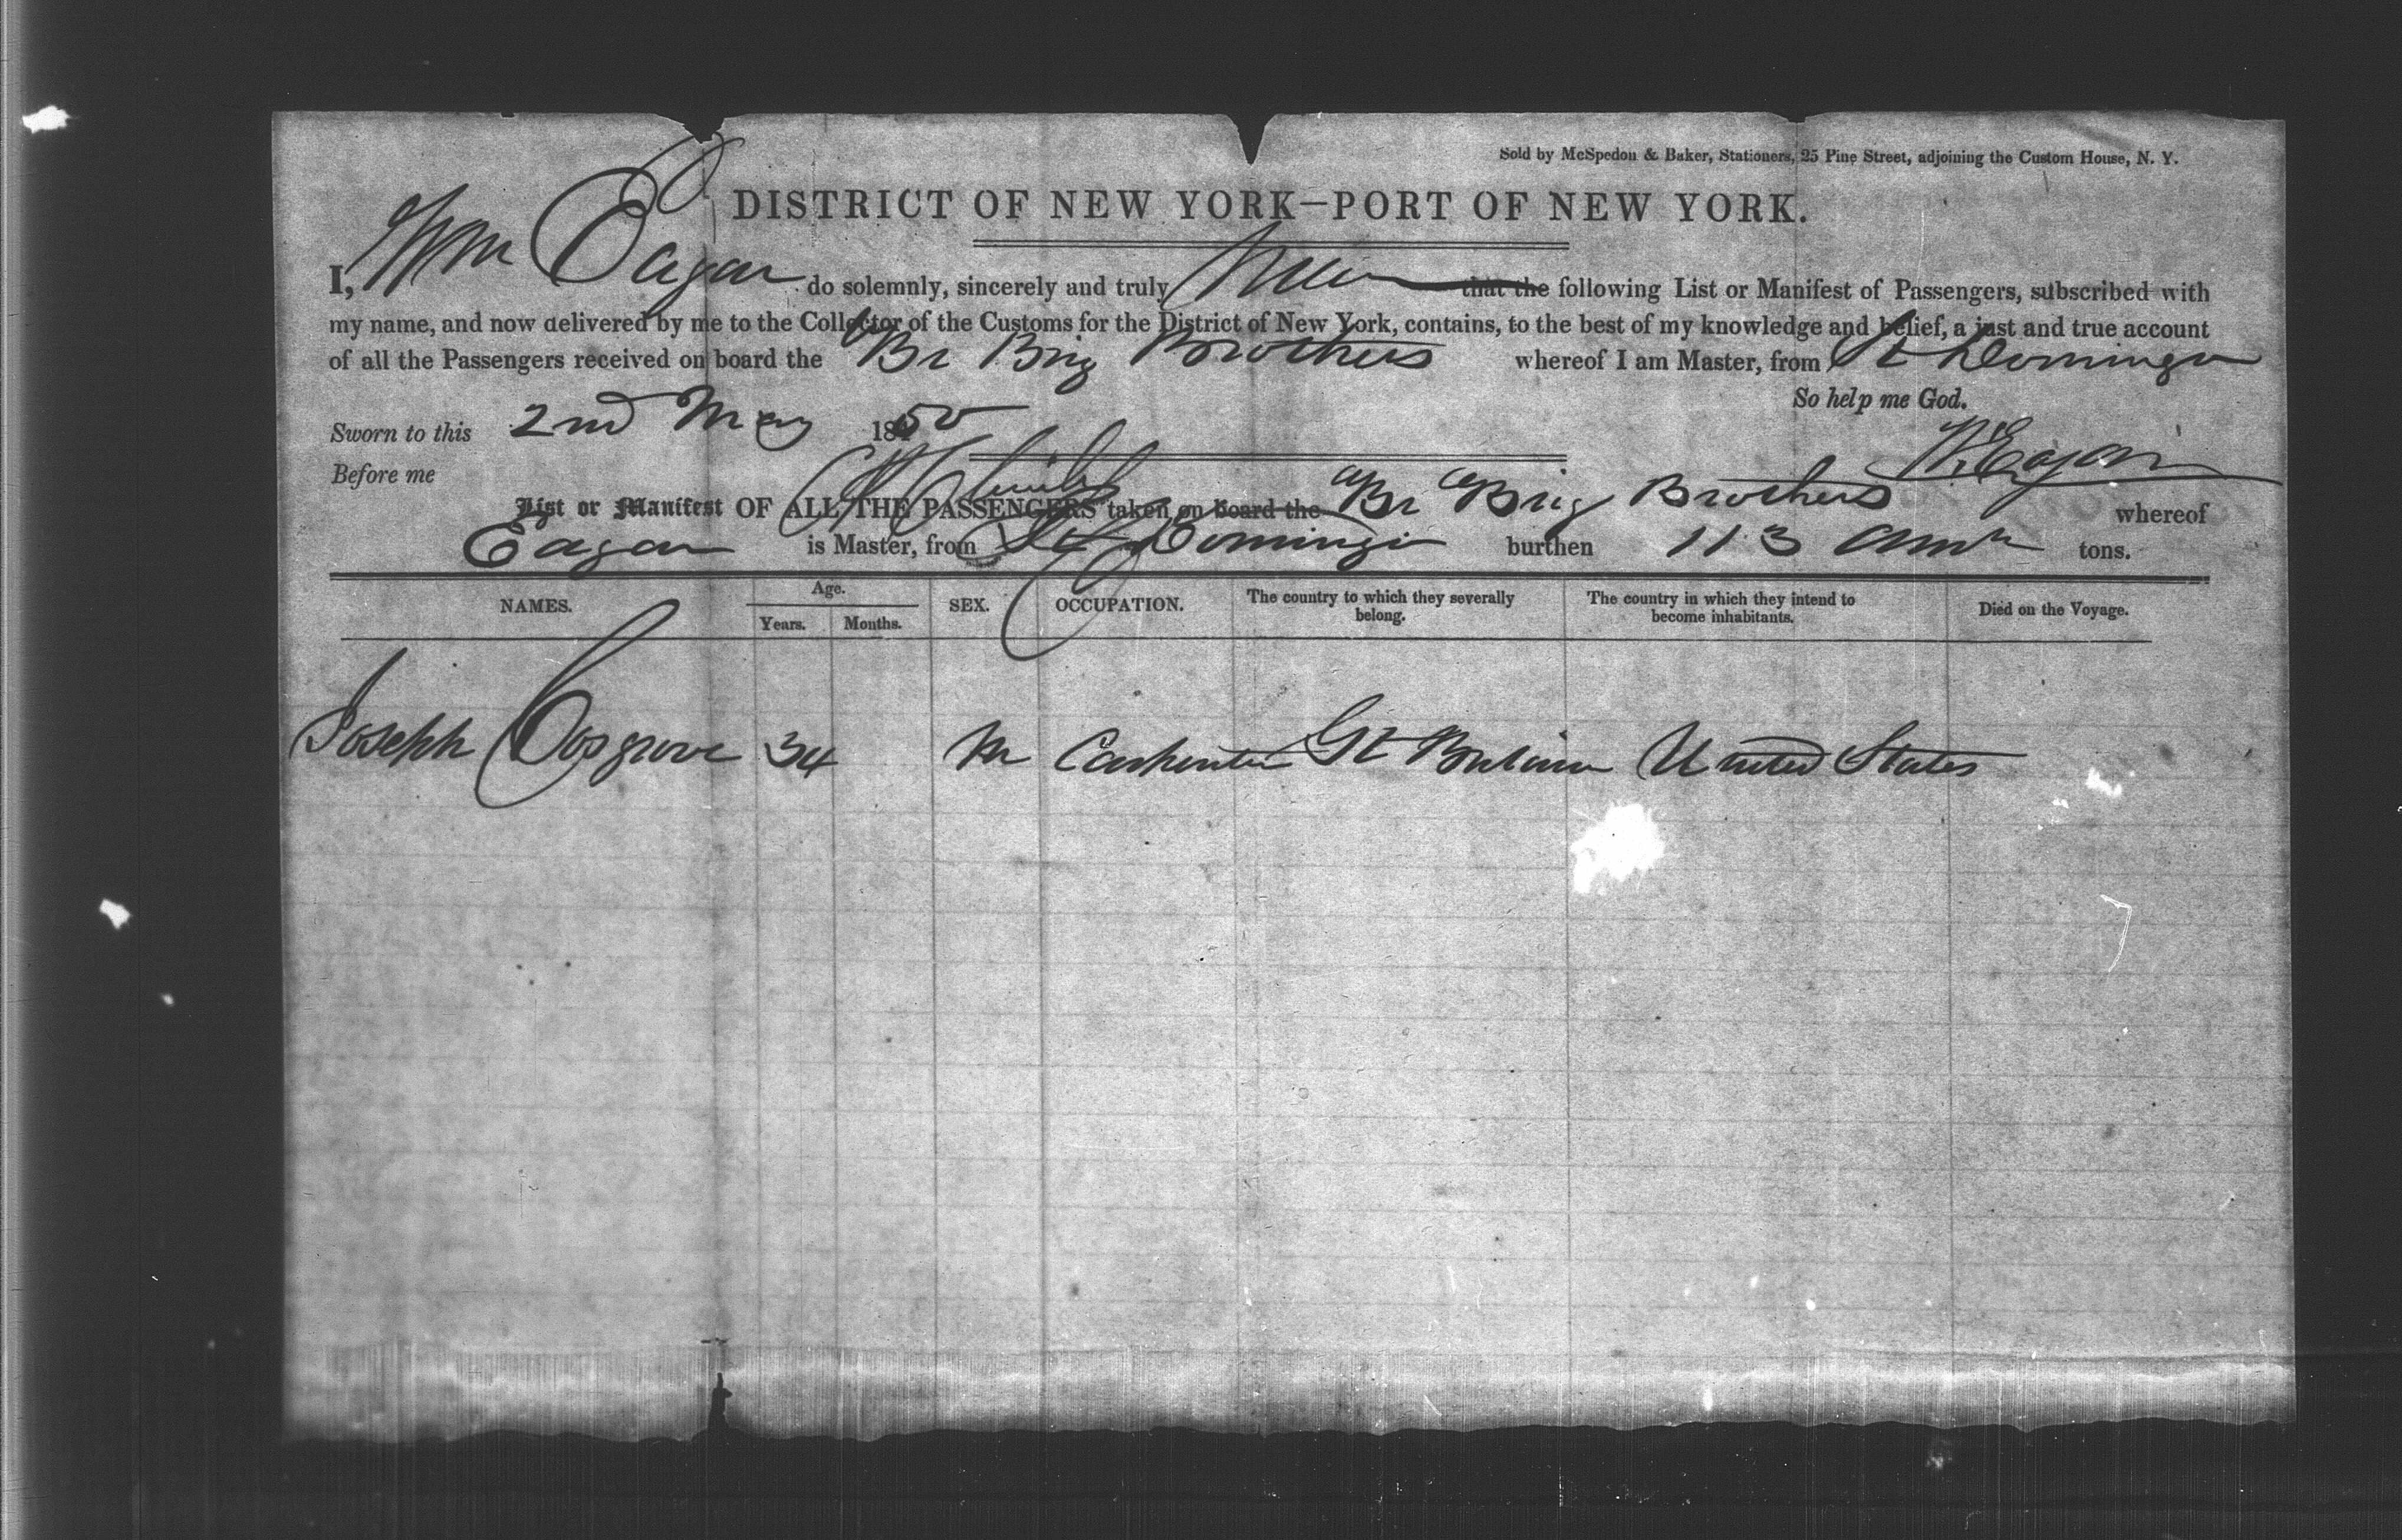 Sold by McSpedon & Baker, Stationers, 25 Pine Street, adjoining the Custom House, N. Y.
DISTRICT OF NEW YORK—PORT OF NEW YORK.
I, Wm Eagan do solemnly, sincerely and truly that the following List or Manifest of Passengers, subscribed with
my name, and now delivered by me to the Collector of the Customs for the District of New York, contains, to the best of my knowledge and belief, a just and true account
of all the Passengers received on board the Br Brig Brothers whereof I am Master, from St Domingo
So help me God.
Sworn to this 2nd May 1850
W. Eagan
Before me
List or Manifest OF ALL THE PASSENGERS taken on board the Br Brig Brothers whereof
Eagan is Master, from St Domingo burthen 113 tons.
NAMES. Age. Years. Months. SEX. OCCUPATION. The country to which they severally belong. The country in which they intend to become inhabitants. Died on the Voyage.
Joseph Cosgrove 34 M Carpenter Gt Britain United States